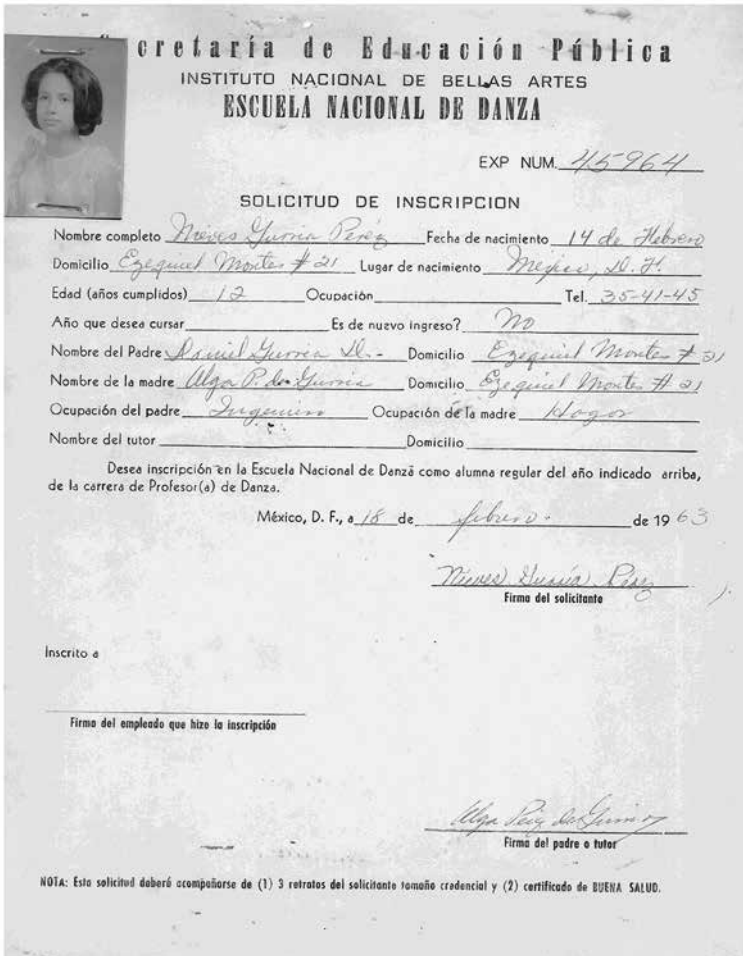 cretaría de Educación Pública
INSTITUTO NACIONAL DE BELLAS ARTES
ESCUELA NACIONAL DE DANZA
EXP NUM. 45964
SOLICITUD DE INSCRIPCION
Nombre completo Nieves Gurría Pérez Fecha de nacimiento 14 de Febrero
Domicilio Ezequiel Montes # 21 Lugar de nacimiento Mejico, D. F.
Edad (años cumplidos) 12 Ocupación Tel. 35-41-45
Año que desea cursar Es de nuevo ingreso? No
Nombre del Padre Daniel Gurria D. Domicilio Ezequiel Montes # 21
Nombre de la madre Alga P. de Gurria Domicilio Ezequiel Montes # 21
Ocupación del padre Ingeniero Ocupación de la madre Hogar
Nombre del tutor Domicilio
Desea inscripción en la Escuela Nacional de Danza como alumna regular del año indicado arriba,
de la carrera de Profesor(a) de Danza.
México, D. F., a 18 de febrero de 1963
Nieves Gurría Pérez
Firma del solicitante
Inscrito a
Firma del empleado que hizo la inscripción
Alga Pérez de Gurria
Firma del padre o tutor
NOTA: Esta solicitud deberá acompañarse de (1) 3 retratos del solicitante tamaño credencial y (2) certificado de BUENA SALUD.